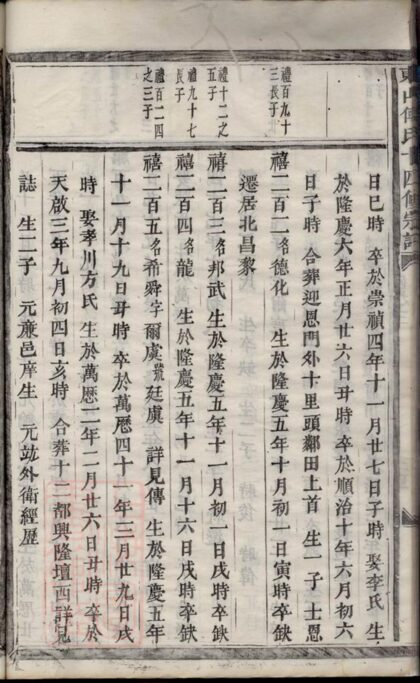 日巳時 卒於崇禎四年十一月廿七日子時 娶李氏 生
於隆慶六年正月廿六日丑時 卒於順治十年六月初六
日子時 合葬迎恩門外十里頭鄰田上首 生一子 士恩
禮百九十三長子
禧二百二名德化 生於隆慶五年十月初一日寅時卒缺
遷居北昌黎
禮十二之五子
禧二百三名邦武 生於隆慶五年十一月初一日戌時卒缺
禮百九十七長子
禧二百四名龍 生於隆慶五年十一月十六日戌時卒缺
禮百二四之三子
禧二百五名希舜字爾虞號廷虞 詳見傳 生於隆慶五年
十一月十九日丑時 卒於萬歷四十一年三月廿九日戌
時 娶孝川方氏 生於萬歷二年二月廿六日丑時 卒於
天啟三年九月初四日亥時 合葬十二都興隆壇西詳見
誌 生二子 元亷邑庠生 元竑外衛經歷